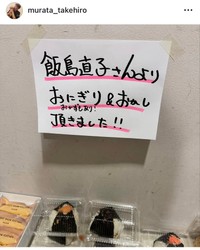 murata_takehiro
飯島直子さんより
おにぎり&おめし
頂きました!!